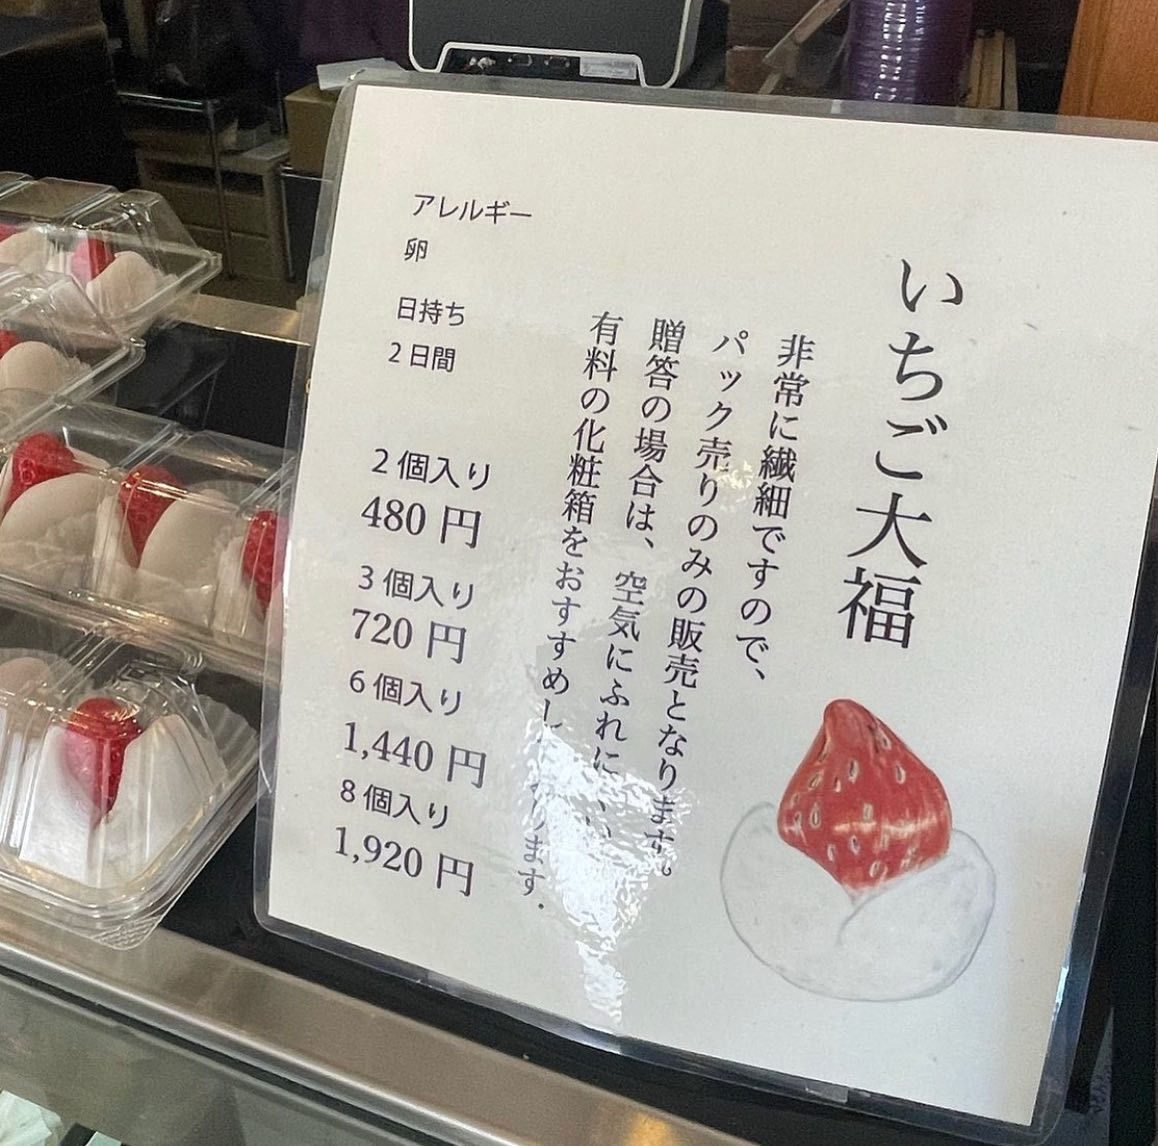 いちご大福
非常に繊細ですので、
パック売りのみの販売となります。
贈答の場合は、空気にふれにくい
有料の化粧箱をおすすめしております。
アレルギー
卵
日持ち
2日間
2個入り
480円
3個入り
720円
6個入り
1,440円
8個入り
1,920円